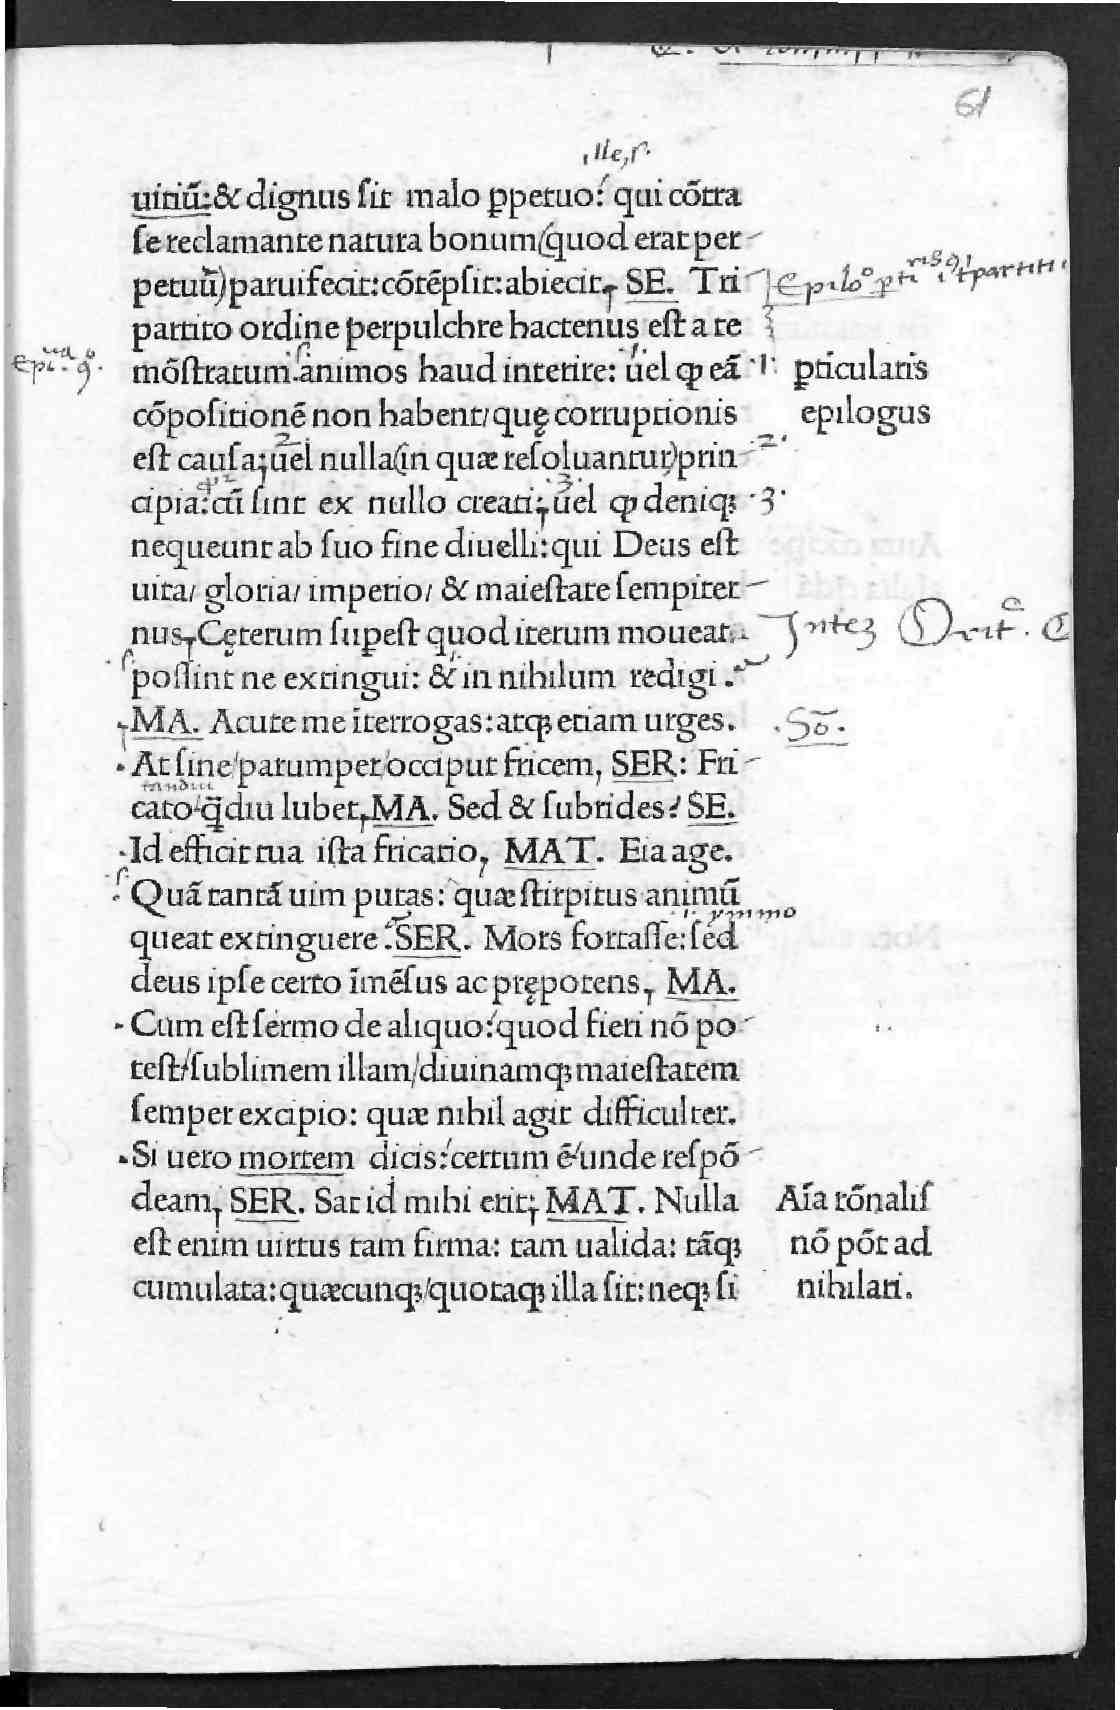 61
uitiũ:& dignus ſit malo ꝑpetuo: qui cõtra
ſe reclamante natura bonum (quod erat per
petuũ) paruifecit: cõtẽpſit: abiecit, SE. Tri
partito ordine perpulchre hactenus eſt a te
mõſtratum: animos haud interire: uel ꝙ eã ·1· ꝑticularis
cõpoſitionẽ non habent/ quę corruptionis epilogus
eſt cauſa; uel nulla (in quæ reſoluantur) prin ·2·
cipia: cũ ſint ex nullo creati; uel ꝙ deniqꝫ ·3·
nequeunt ab ſuo fine diuelli: qui Deus eſt
uita/ gloria/ imperio/ & maieſtate ſempiter
nus, Cęterum ſuꝑeſt quod iterum moueat.
poſſint ne extingui: & in nihilum redigi.
MA. Acute me ĩterrogas: atqꝫ etiam urges. ·So͂·
At ſine/ parumper/ occiput fricem, SER: Fri
cato/ q̃diu lubet, MA. Sed & ſubrides? SE.
Id efficit tua iſta fricatio, MAT. Eia age.
Quã tantã uim putas: quæ ſtirpitus animũ
queat extinguere? SER. Mors fortaſſe: ſed
deus ipſe certo ĩmẽſus ac prępotens, MA.
Cum eſt ſermo de aliquo: quod fieri nõ po
teſt/ ſublimem illam/ diuinamqꝫ maieſtatem
ſemper excipio: quæ nihil agit difficulter.
Si uero mortem dicis: certum ẽ/ unde reſpõ
deam, SER. Sat id mihi erit; MAT. Nulla Aĩa rõnaliſ
eſt enim uirtus tam firma: tam ualida: tãqꝫ nõ põt ad
cumulata: quæcunqꝫ/ quotaqꝫ illa ſit: neqꝫ ſi nihilari.